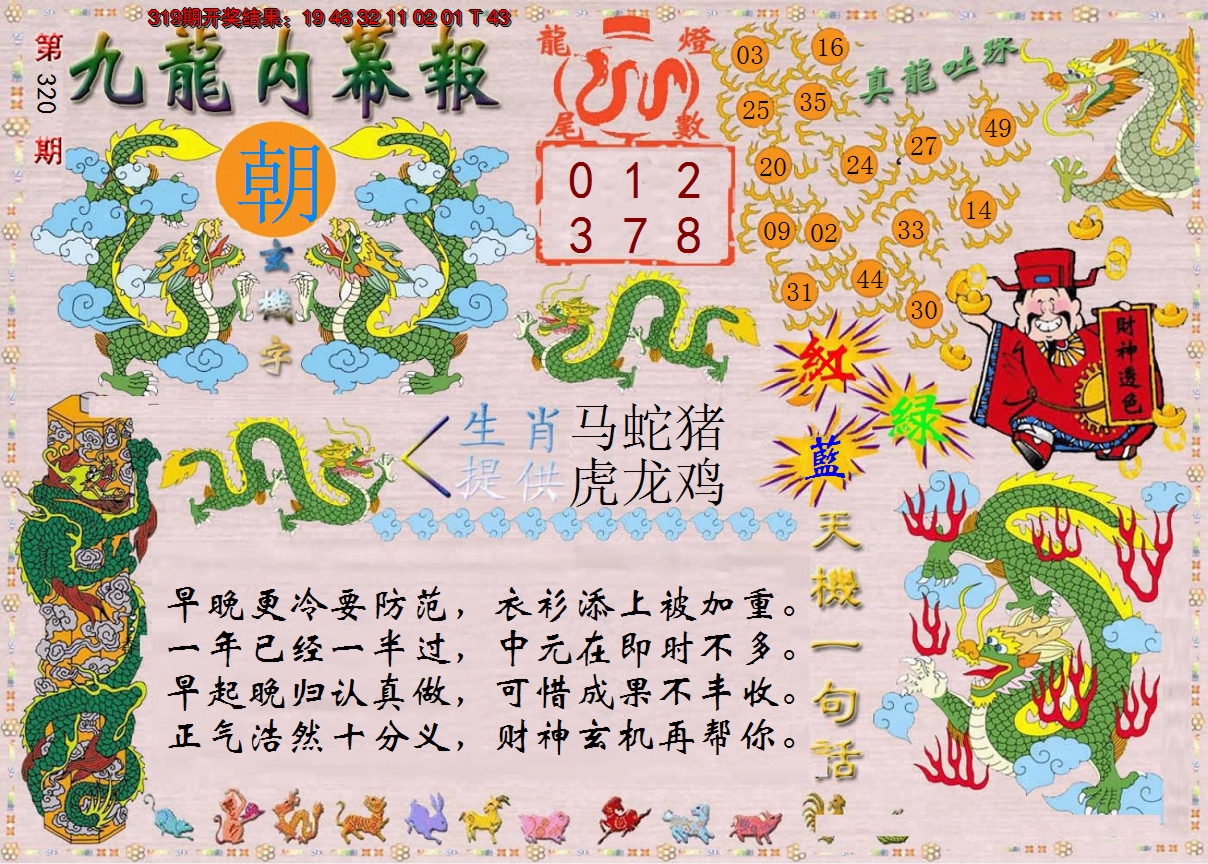 319期开奖结果：19 48 32 11 02 01 T 43
第320期
九龍内幕報
朝
玄機字
龍燈尾數
0 1 2
3 7 8
真龍吐珠
03 16
25 35
20 24 27 49
09 02 33 14
31 44 30
財神透色
紅
綠
藍
生肖 马蛇猪
提供 虎龙鸡
天機一句話
早晚更冷要防范，衣衫添上被加重。
一年已经一半过，中元在即时不多。
早起晚归认真做，可惜成果不丰收。
正气浩然十分义，财神玄机再帮你。